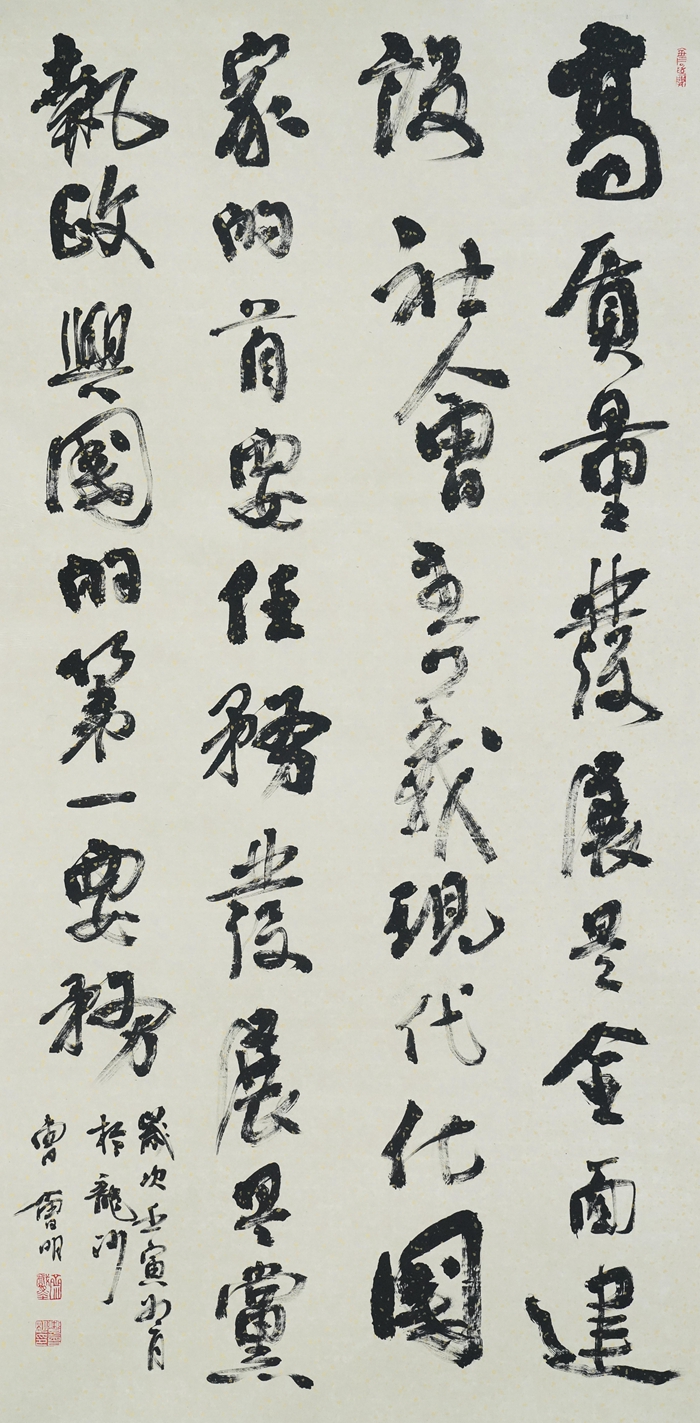 高质量發展是全面建
設社會主義現代化國
家的首要任務發展是黨
執政興國的第一要務
歲次壬寅月
於龍沙
曹明